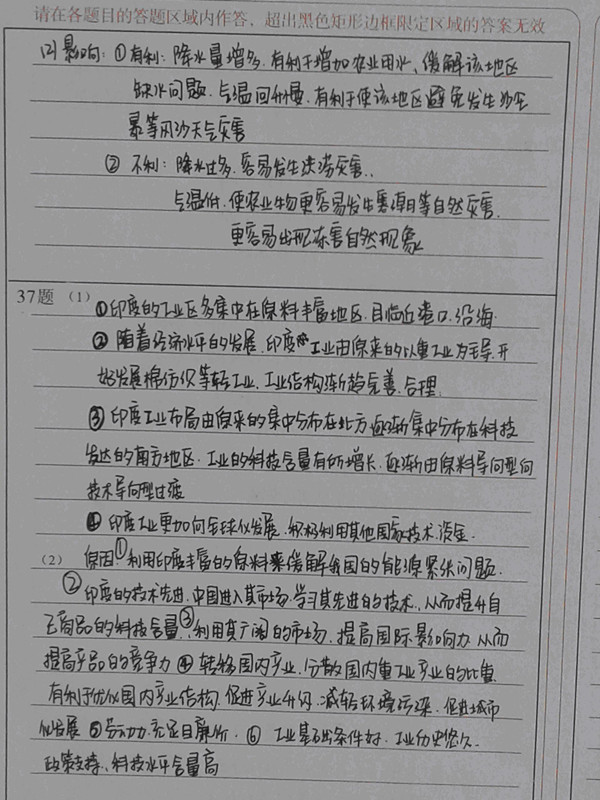 请在各题目的答题区域内作答，超出黑色矩形边框限定区域的答案无效
(2) 影响：①有利：降水量增多，有利于增加农业用水，缓解该地区
缺水问题，气温回升慢，有利于使该地区避免发生沙尘
暴等风沙天气灾害
② 不利：降水过多，容易发生洪涝灾害，
气温低，使农业生物更容易发生寒潮等自然灾害，
更容易出现冻害自然现象
37题 （1）①印度的工业区多集中在原料丰富地区，且临近港口，沿海
② 随着经济水平的发展，印度工业由原来的以重工业为主导，开
始发展棉纺织等轻工业，工业结构渐趋完善，合理
③ 印度工业布局由原来的集中分布在北方逐渐集中分布在科技
发达的南方地区，工业的科技含量有所增长，逐渐由原料导向型向
技术导向型过渡
④ 印度工业更加向全球化发展，积极利用其他国家技术，资金．
（2） 原因①利用印度丰富的原料来缓解我国的能源紧张问题．
②印度的技术先进，中国进入其市场，学习其先进的技术，从而提升自
己商品的科技含量，③利用其广阔的市场，提高国际影响力，从而
提高产品的竞争力 ④ 转移国内产业，分散国内重工业产业的比重
有利于优化国内产业结构，促进产业升级，减轻环境污染，促进城市
化发展 ⑤劳动力充足且廉价．⑥ 工业基础条件好，工业历史悠久．
政策支持，科技水平含量高